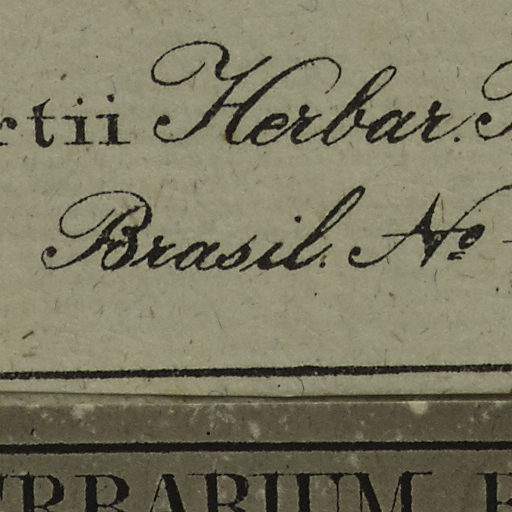 rtii Herbar.
Brasil. No
ERBARIUM